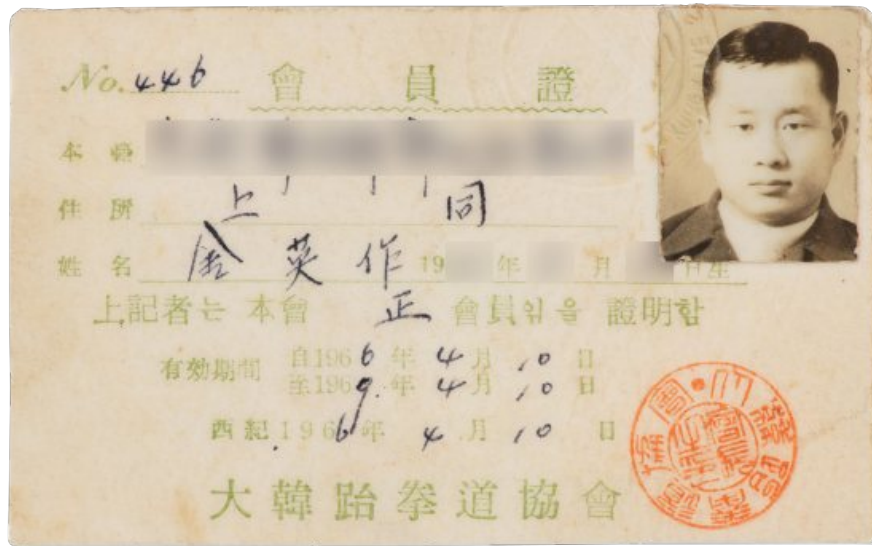 No. 446 會員證
本籍
住所 上 同
姓名 金英作 19 年 月 日生
上記者는 本會 正 會員임을 證明함
有効期間 自1966年 4月 10日
至1969年 4月 10日
西紀1966年 4月 10日
大韓跆拳道協會